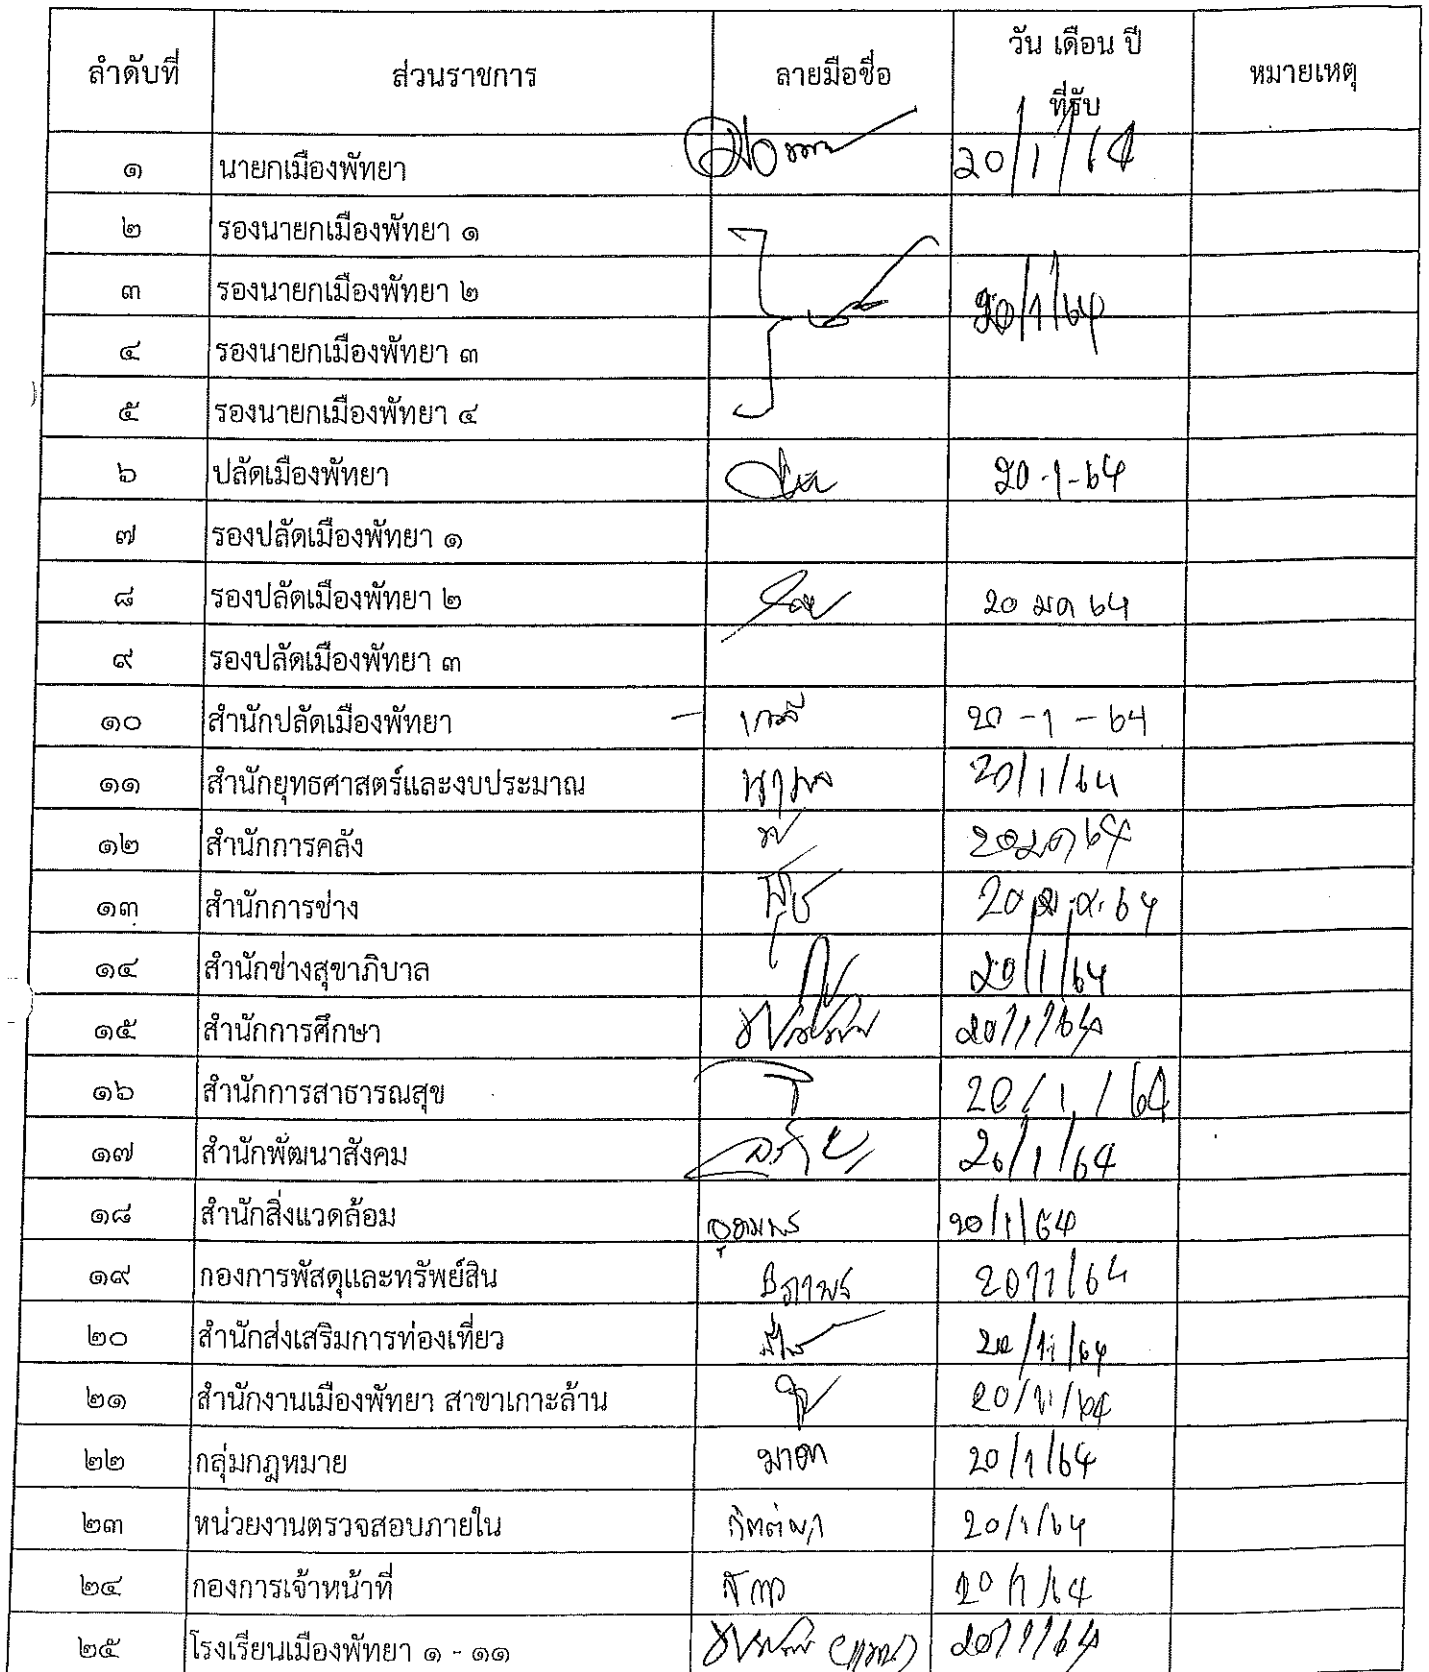 ลำดับที่ ส่วนราชการ ลายมือชื่อ วัน เดือน ปี ที่รับ หมายเหตุ
๑ นายกเมืองพัทยา 20/1/64
๒ รองนายกเมืองพัทยา ๑
๓ รองนายกเมืองพัทยา ๒ 20/1/64
๔ รองนายกเมืองพัทยา ๓
๕ รองนายกเมืองพัทยา ๔
๖ ปลัดเมืองพัทยา 20-1-64
๗ รองปลัดเมืองพัทยา ๑
๘ รองปลัดเมืองพัทยา ๒ 20 มค 64
๙ รองปลัดเมืองพัทยา ๓
๑๐ สำนักปลัดเมืองพัทยา 20-1-64
๑๑ สำนักยุทธศาสตร์และงบประมาณ 20/1/64
๑๒ สำนักการคลัง 20 มค 64
๑๓ สำนักการช่าง 20 ม.ค. 64
๑๔ สำนักช่างสุขาภิบาล 20/1/64
๑๕ สำนักการศึกษา 20/1/64
๑๖ สำนักการสาธารณสุข 20/1/64
๑๗ สำนักพัฒนาสังคม 20/1/64
๑๘ สำนักสิ่งแวดล้อม 20/1/64
๑๙ กองการพัสดุและทรัพย์สิน 20/1/64
๒๐ สำนักส่งเสริมการท่องเที่ยว 20/1/64
๒๑ สำนักงานเมืองพัทยา สาขาเกาะล้าน 20/1/64
๒๒ กลุ่มกฎหมาย 20/1/64
๒๓ หน่วยงานตรวจสอบภายใน 20/1/64
๒๔ กองการเจ้าหน้าที่ 20/1/64
๒๕ โรงเรียนเมืองพัทยา ๑ - ๑๑ 20/1/64